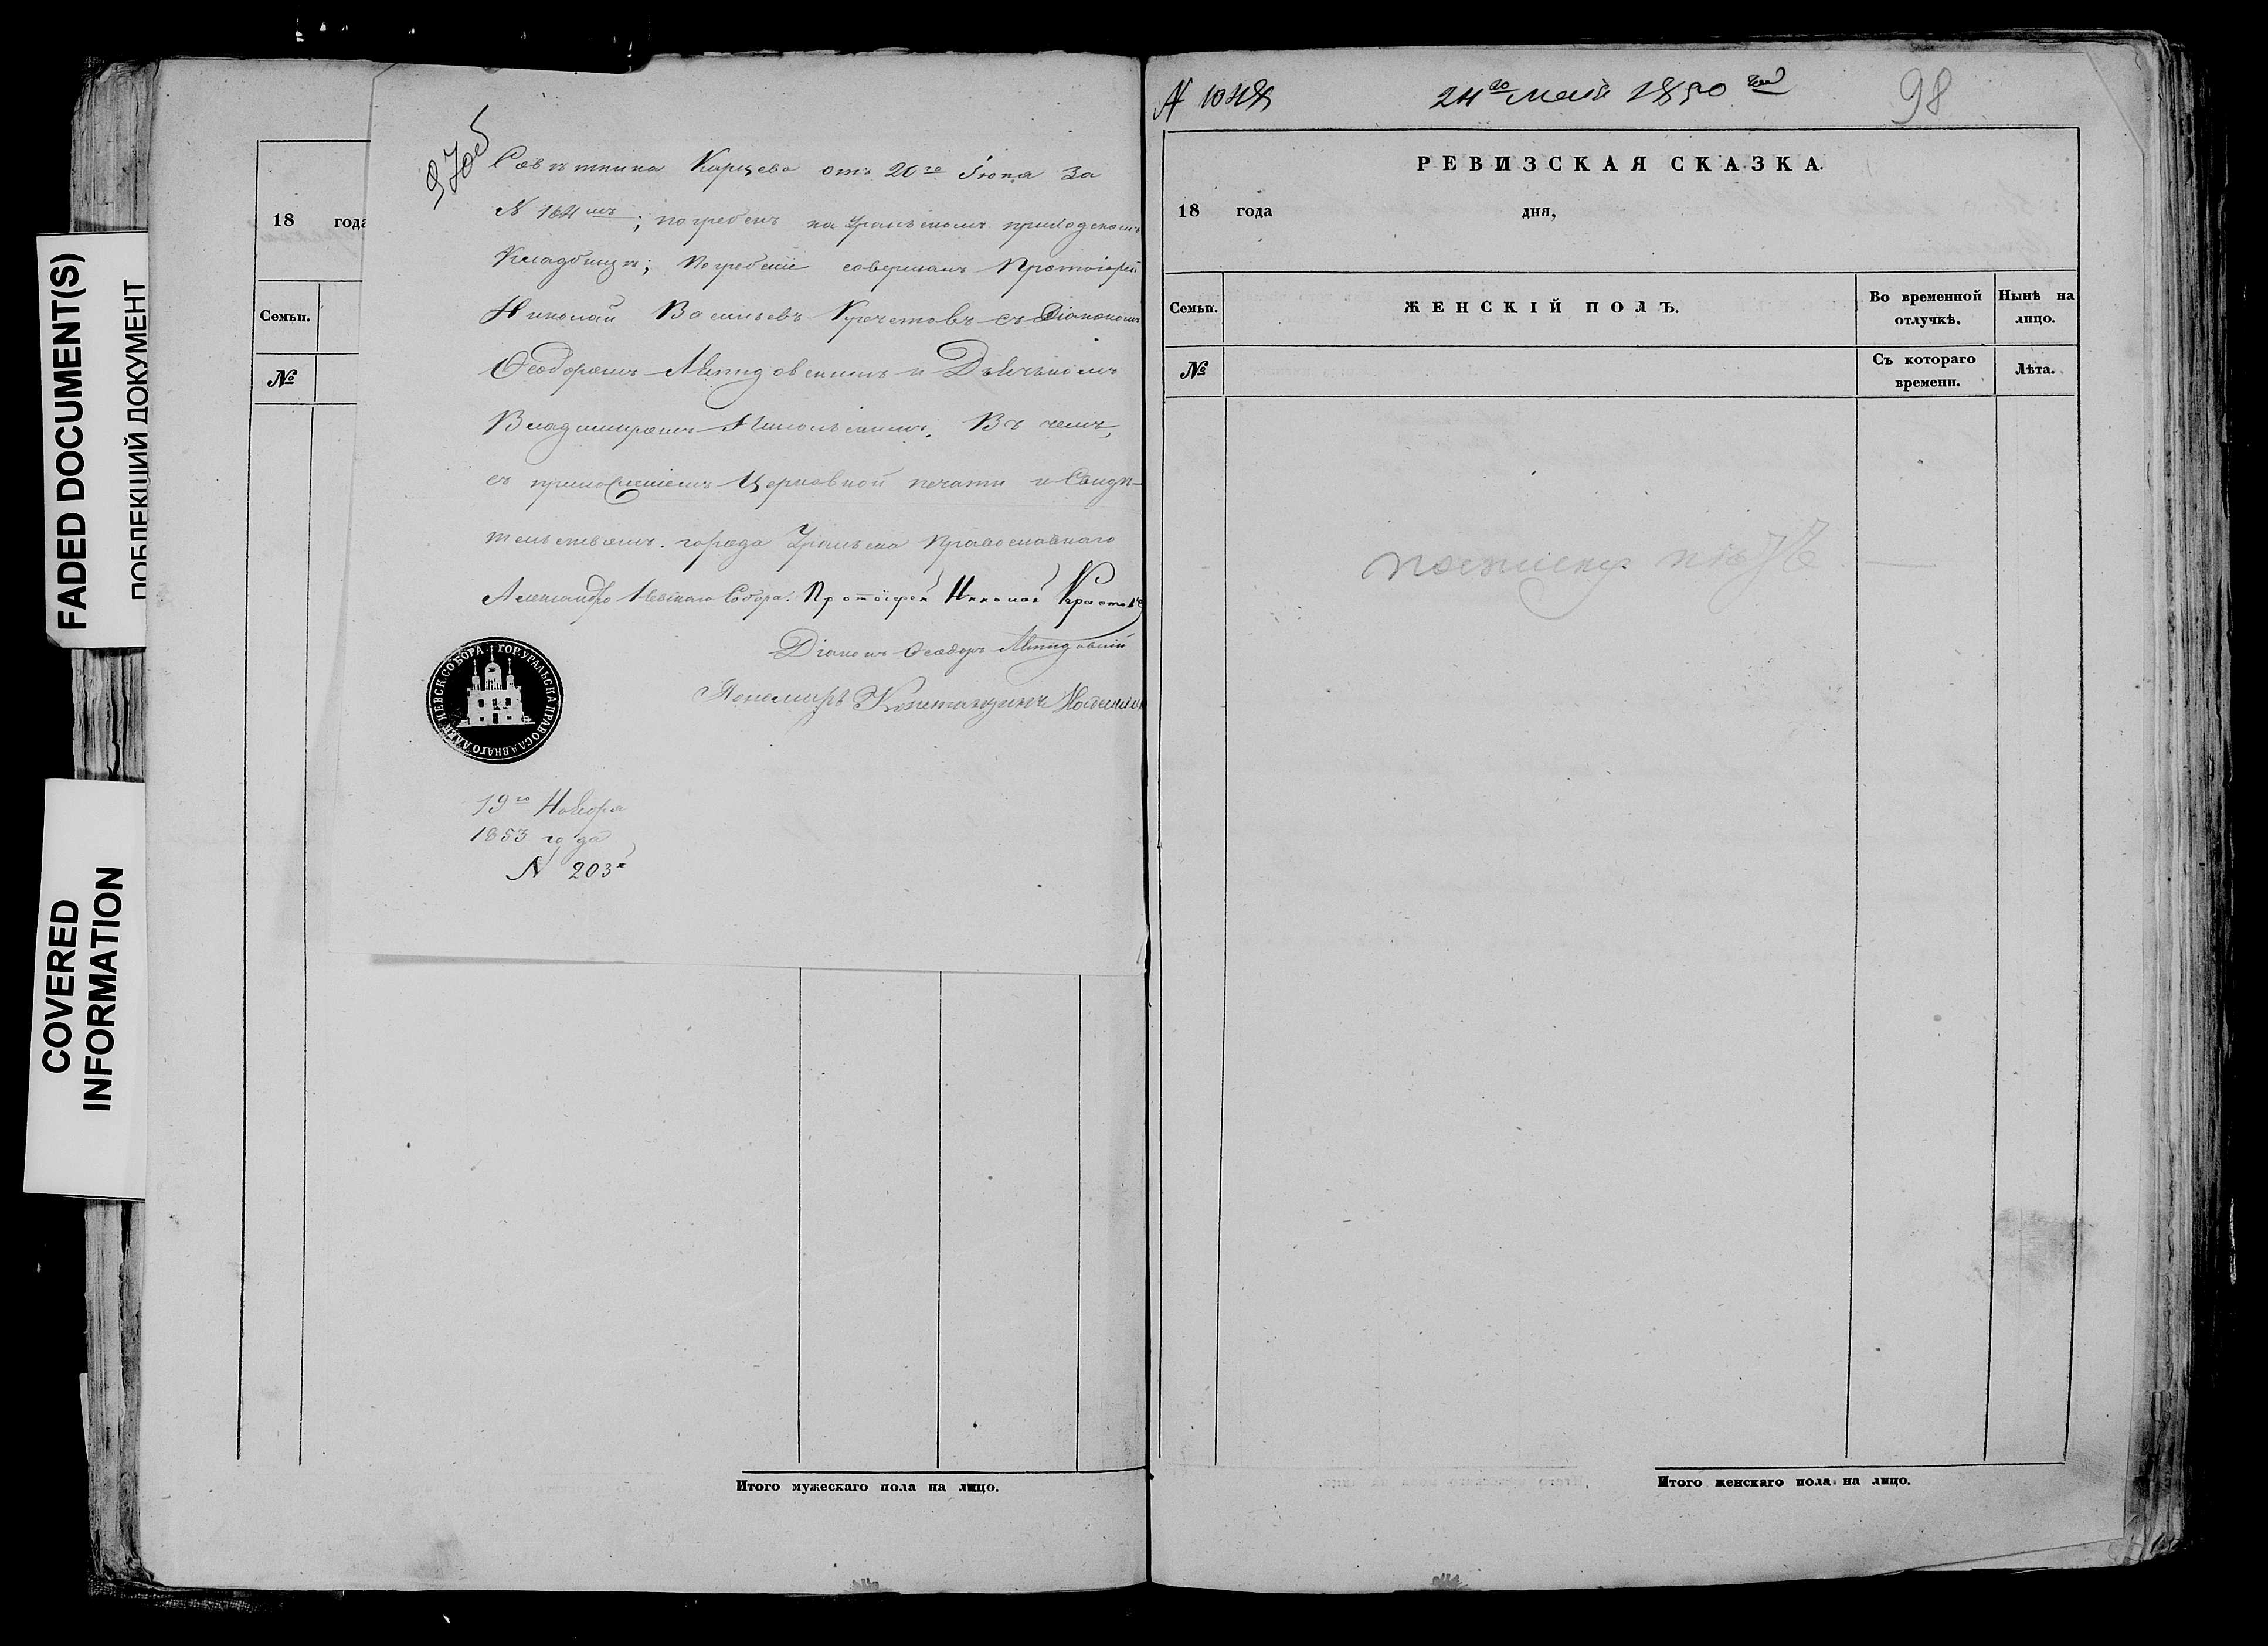 FADED DOCUMENT(S)
ПОБЛЕКШИЙ ДОКУМЕНТ
COVERED
INFORMATION
18 года
Семьи.
№
97об
Совѣтника Карцева отъ 20го Іюня за
N 184мъ; погребенъ на Уральскомъ приходскомъ
Кладбищѣ; Погребеніе совершалъ Протоіерей
Николай Васильевъ съ Діакономъ
Ѳеодоромъ и Дьячкомъ
Владимиромъ Никольскимъ. Въ чемъ,
съ приложеніемъ Церковной печати и Свидѣ-
тельствуемъ. города Уральска Православнаго
Александро Невскаго Собора. Протоіерей Николай
Діаконъ Ѳеодоръ
Пономарь Константинъ
ГОР. УРАЛЬСКА ПРАВОСЛАВНАГО АЛЕК. НЕВСК. СОБОРА
19го Ноября
1853 года
N 203
Итого мужескаго пола на лицо.
N 1048
24го Маія 1850 года
98
РЕВИЗСКАЯ СКАЗКА.
18 года дня,
Семьи.
ЖЕНСКІЙ ПОЛЪ.
Во временной отлучкѣ.
Нынѣ на лицо.
№
Съ котораго времени.
Лѣта.
Итого женскаго пола на лицо.